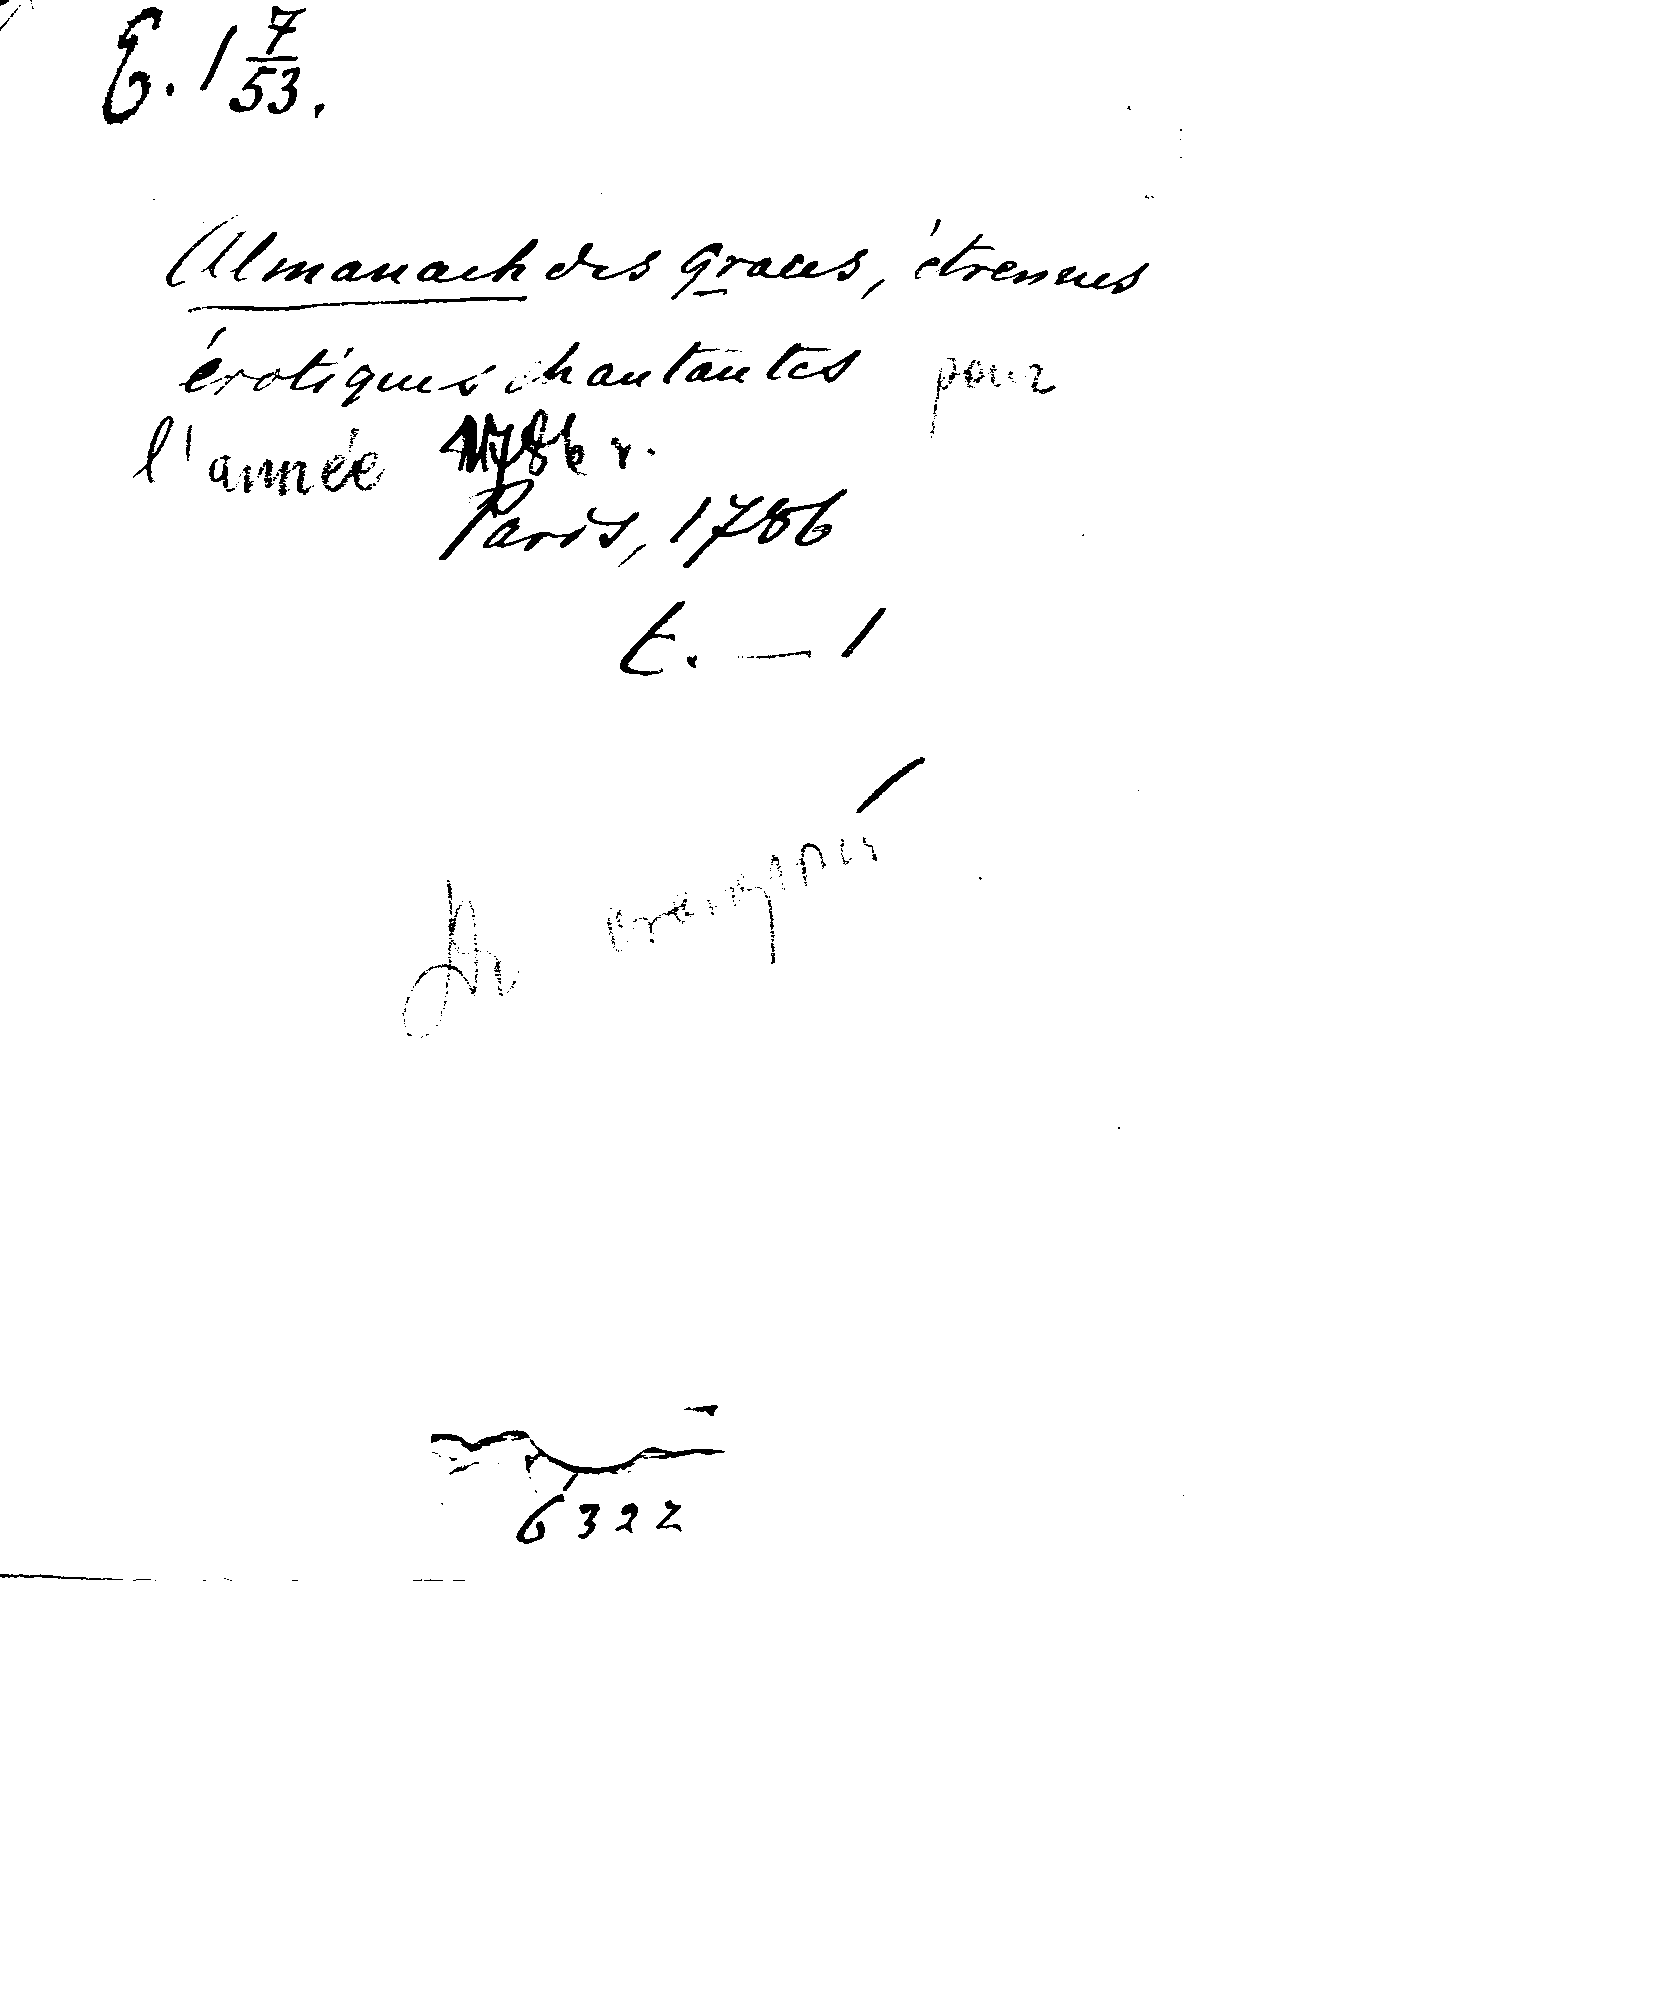 E. 1 7/53.
Almanach des graces, étrennes
érotiques chantantes pour
l'année 1786 r.
Paris, 1786
t. — 1
6322